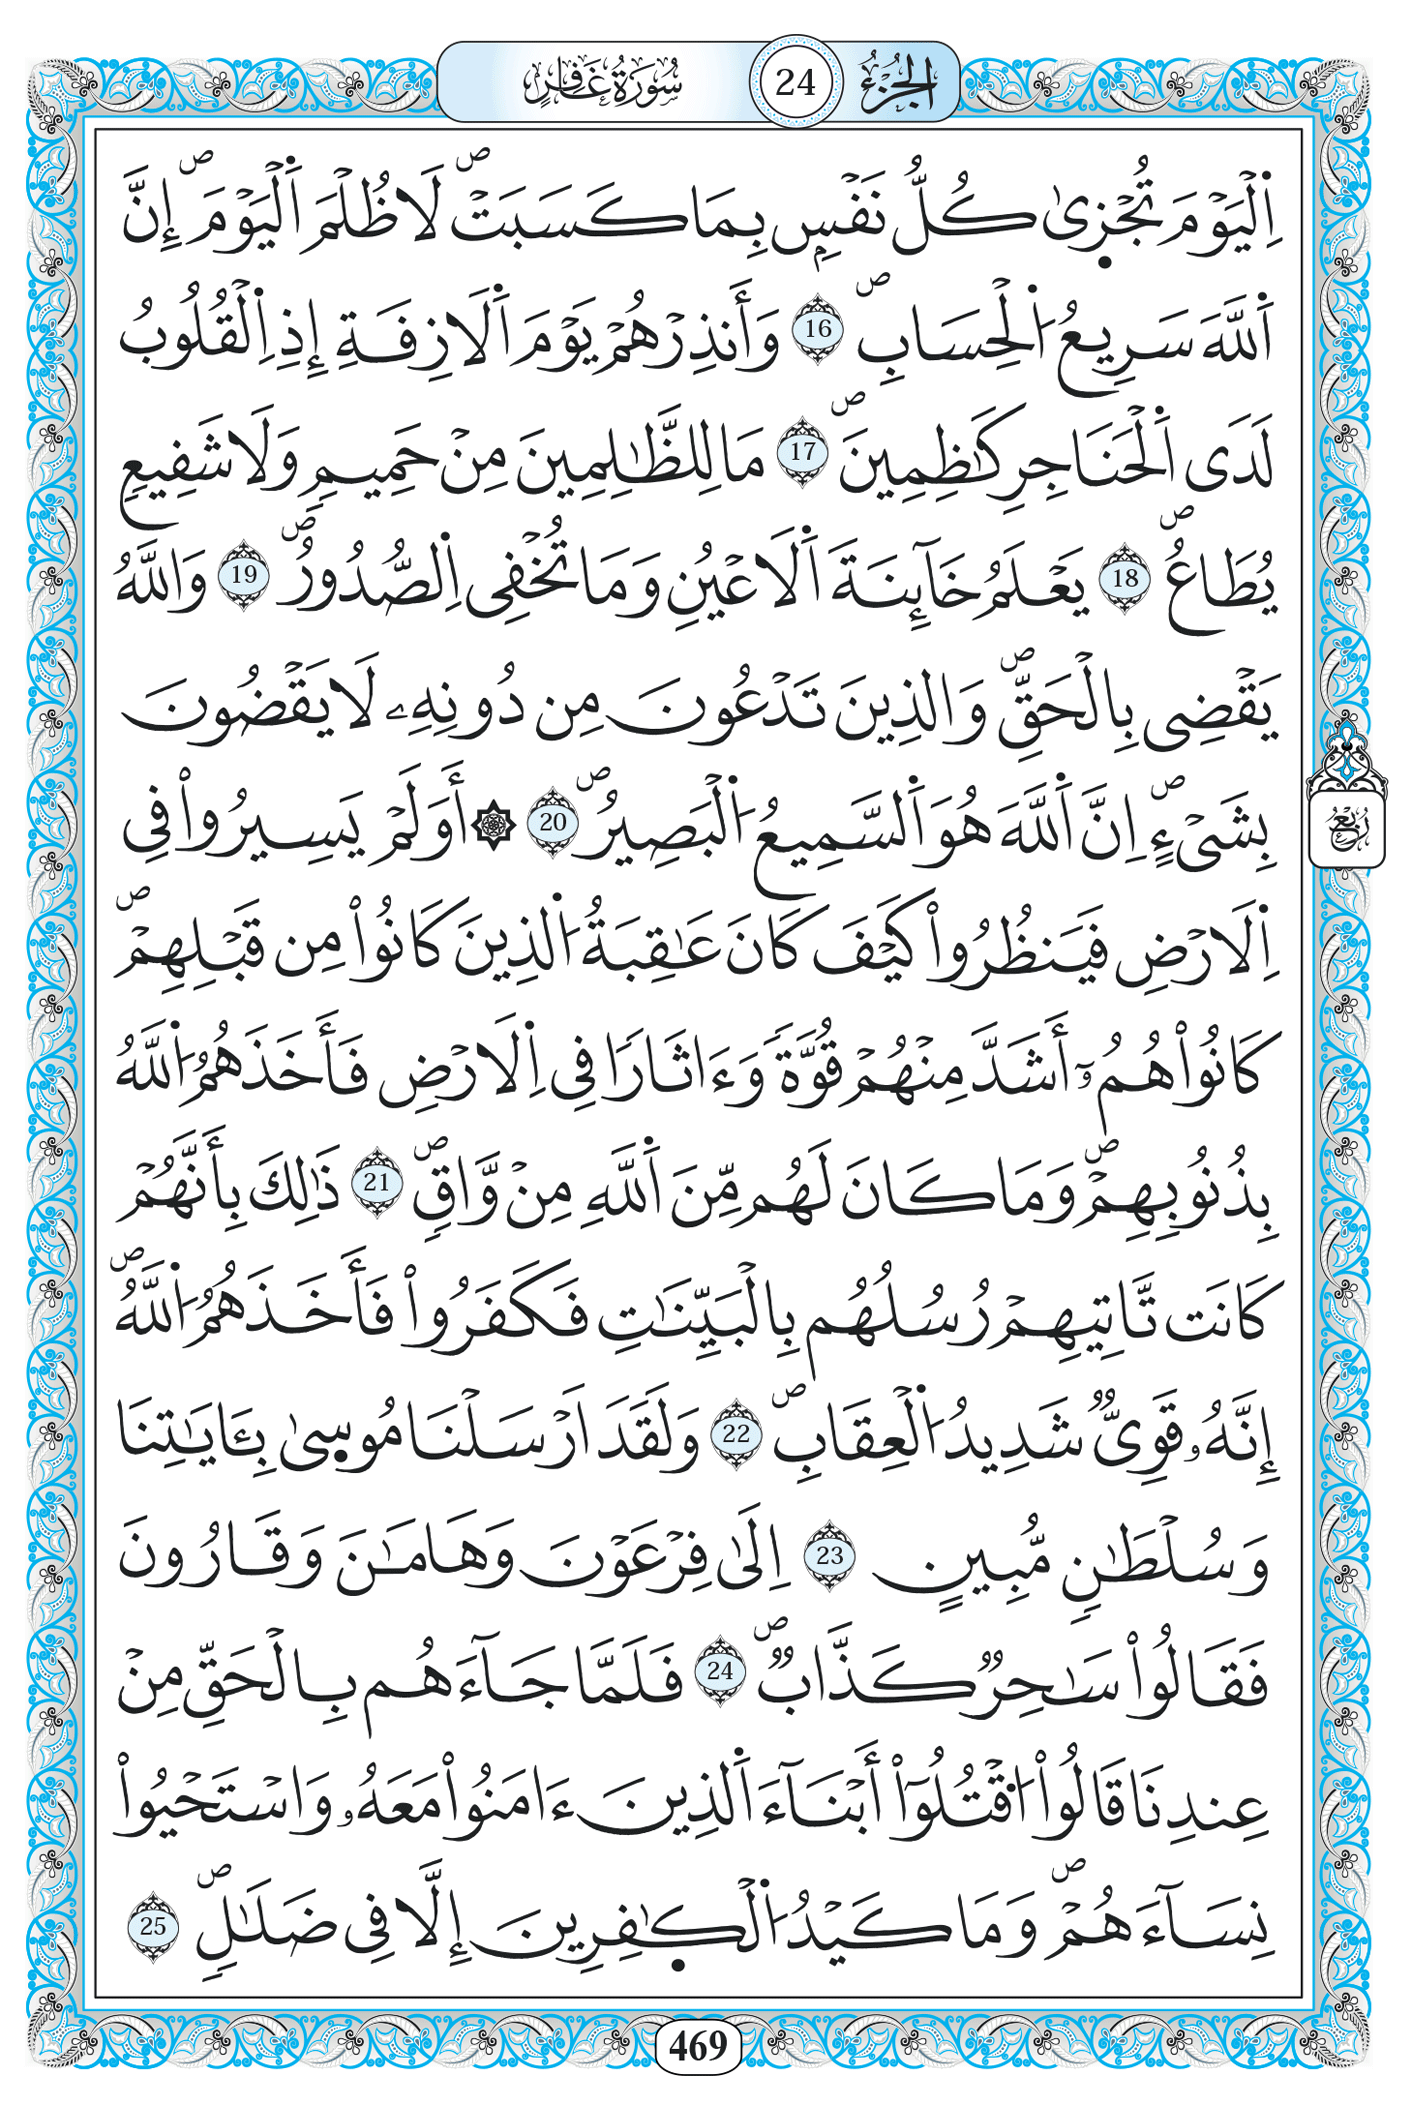 الجُزْءُ 24 سُورَةُ غَافِرٍ
اِ۬لْيَوْمَ تُجْز۪ىٰ كُلُّ نَفْسِۢ بِمَا كَسَبَتْۖ لَا ظُلْمَ اَ۬لْيَوْمَۖ إِنَّ
اَ۬للَّهَ سَرِيعُ اُ۬لْحِسَابِۖ 16 وَأَنذِرْهُمْ يَوْمَ اَ۬لَازِفَةِ إِذِ اِ۬لْقُلُوبُ
لَدَى اَ۬لْحَنَاجِرِ كَٰظِمِينَۖ 17 مَا لِلظَّٰلِمِينَ مِنْ حَمِيمٖ وَلَا شَفِيعٖ
يُطَاعُۖ 18 يَعْلَمُ خَآئِنَةَ اَ۬لَاعْيُنِ وَمَا تُخْفِى اِ۬لصُّدُورُۖ 19 وَاللَّهُ
يَقْضِى بِالْحَقِّۖ وَالذِينَ تَدْعُونَ مِن دُونِهِۦ لَا يَقْضُونَ
بِشَىْءٍۖ اِنَّ اَ۬للَّهَ هُوَ اَ۬لسَّمِيعُ اُ۬لْبَصِيرُۖ 20 ۞ أَوَلَمْ يَسِيرُواْ فِى
اِ۬لَارْضِ فَيَنظُرُواْ كَيْفَ كَانَ عَٰقِبَةُ اُ۬لذِينَ كَانُواْ مِن قَبْلِهِمْۖ
كَانُواْ هُمُۥٓ أَشَدَّ مِنْهُمْ قُوَّةٗ وَءَاثَارٗا فِى اِ۬لَارْضِ فَأَخَذَهُمُ اُ۬للَّهُ
بِذُنُوبِهِمْۖ وَمَا كَانَ لَهُم مِّنَ اَ۬للَّهِ مِنْ وَّاقٖۖ 21 ذَٰلِكَ بِأَنَّهُمْ
كَانَت تَّاتِيهِمْ رُسُلُهُم بِالْبَيِّنَٰتِ فَكَفَرُواْ فَأَخَذَهُمُ اُ۬للَّهُۖ
إِنَّهُۥ قَوِىّٞ شَدِيدُ اُ۬لْعِقَابِۖ 22 وَلَقَدَ اَرْسَلْنَا مُوس۪ىٰ بِـَٔايَٰتِنَا
وَسُلْطَٰنٖ مُّبِينٍ 23 اِلَىٰ فِرْعَوْنَ وَهَامَٰنَ وَقَارُونَ
فَقَالُواْ سَٰحِرٞ كَذَّابٞۖ 24 فَلَمَّا جَآءَهُم بِالْحَقِّ مِنْ
عِندِنَا قَالُواْ اُ۟قْتُلُوٓاْ أَبْنَآءَ اَ۬لذِينَ ءَامَنُواْ مَعَهُۥ وَاسْتَحْيُواْ
نِسَآءَهُمْۖ وَمَا كَيْدُ اُ۬لْكٰ۪فِرِينَ إِلَّا فِى ضَلَٰلٖۖ 25
رُبْعٌ
469